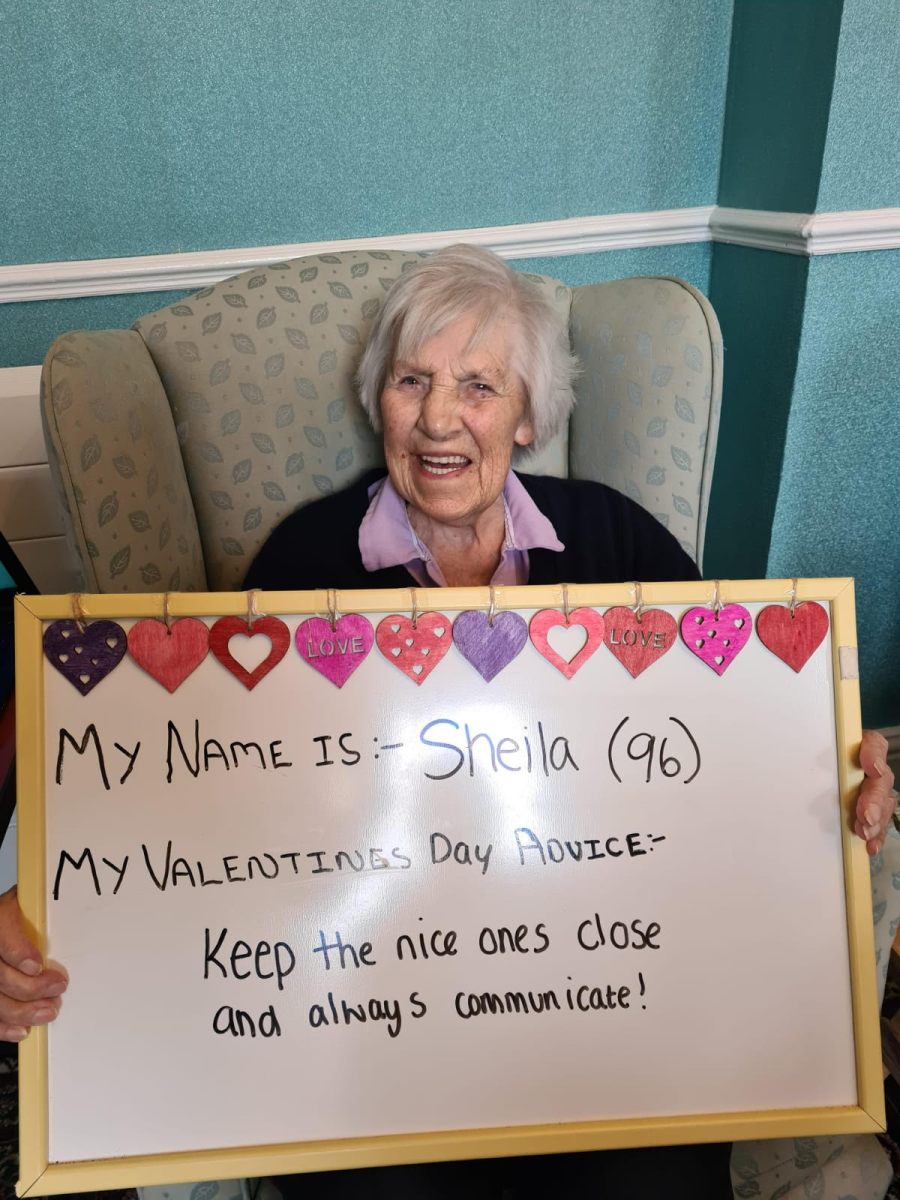 LOVE LOVE
My Name is:- Sheila (96)
My Valentines Day Advice:-
Keep the nice ones close
and always communicate!